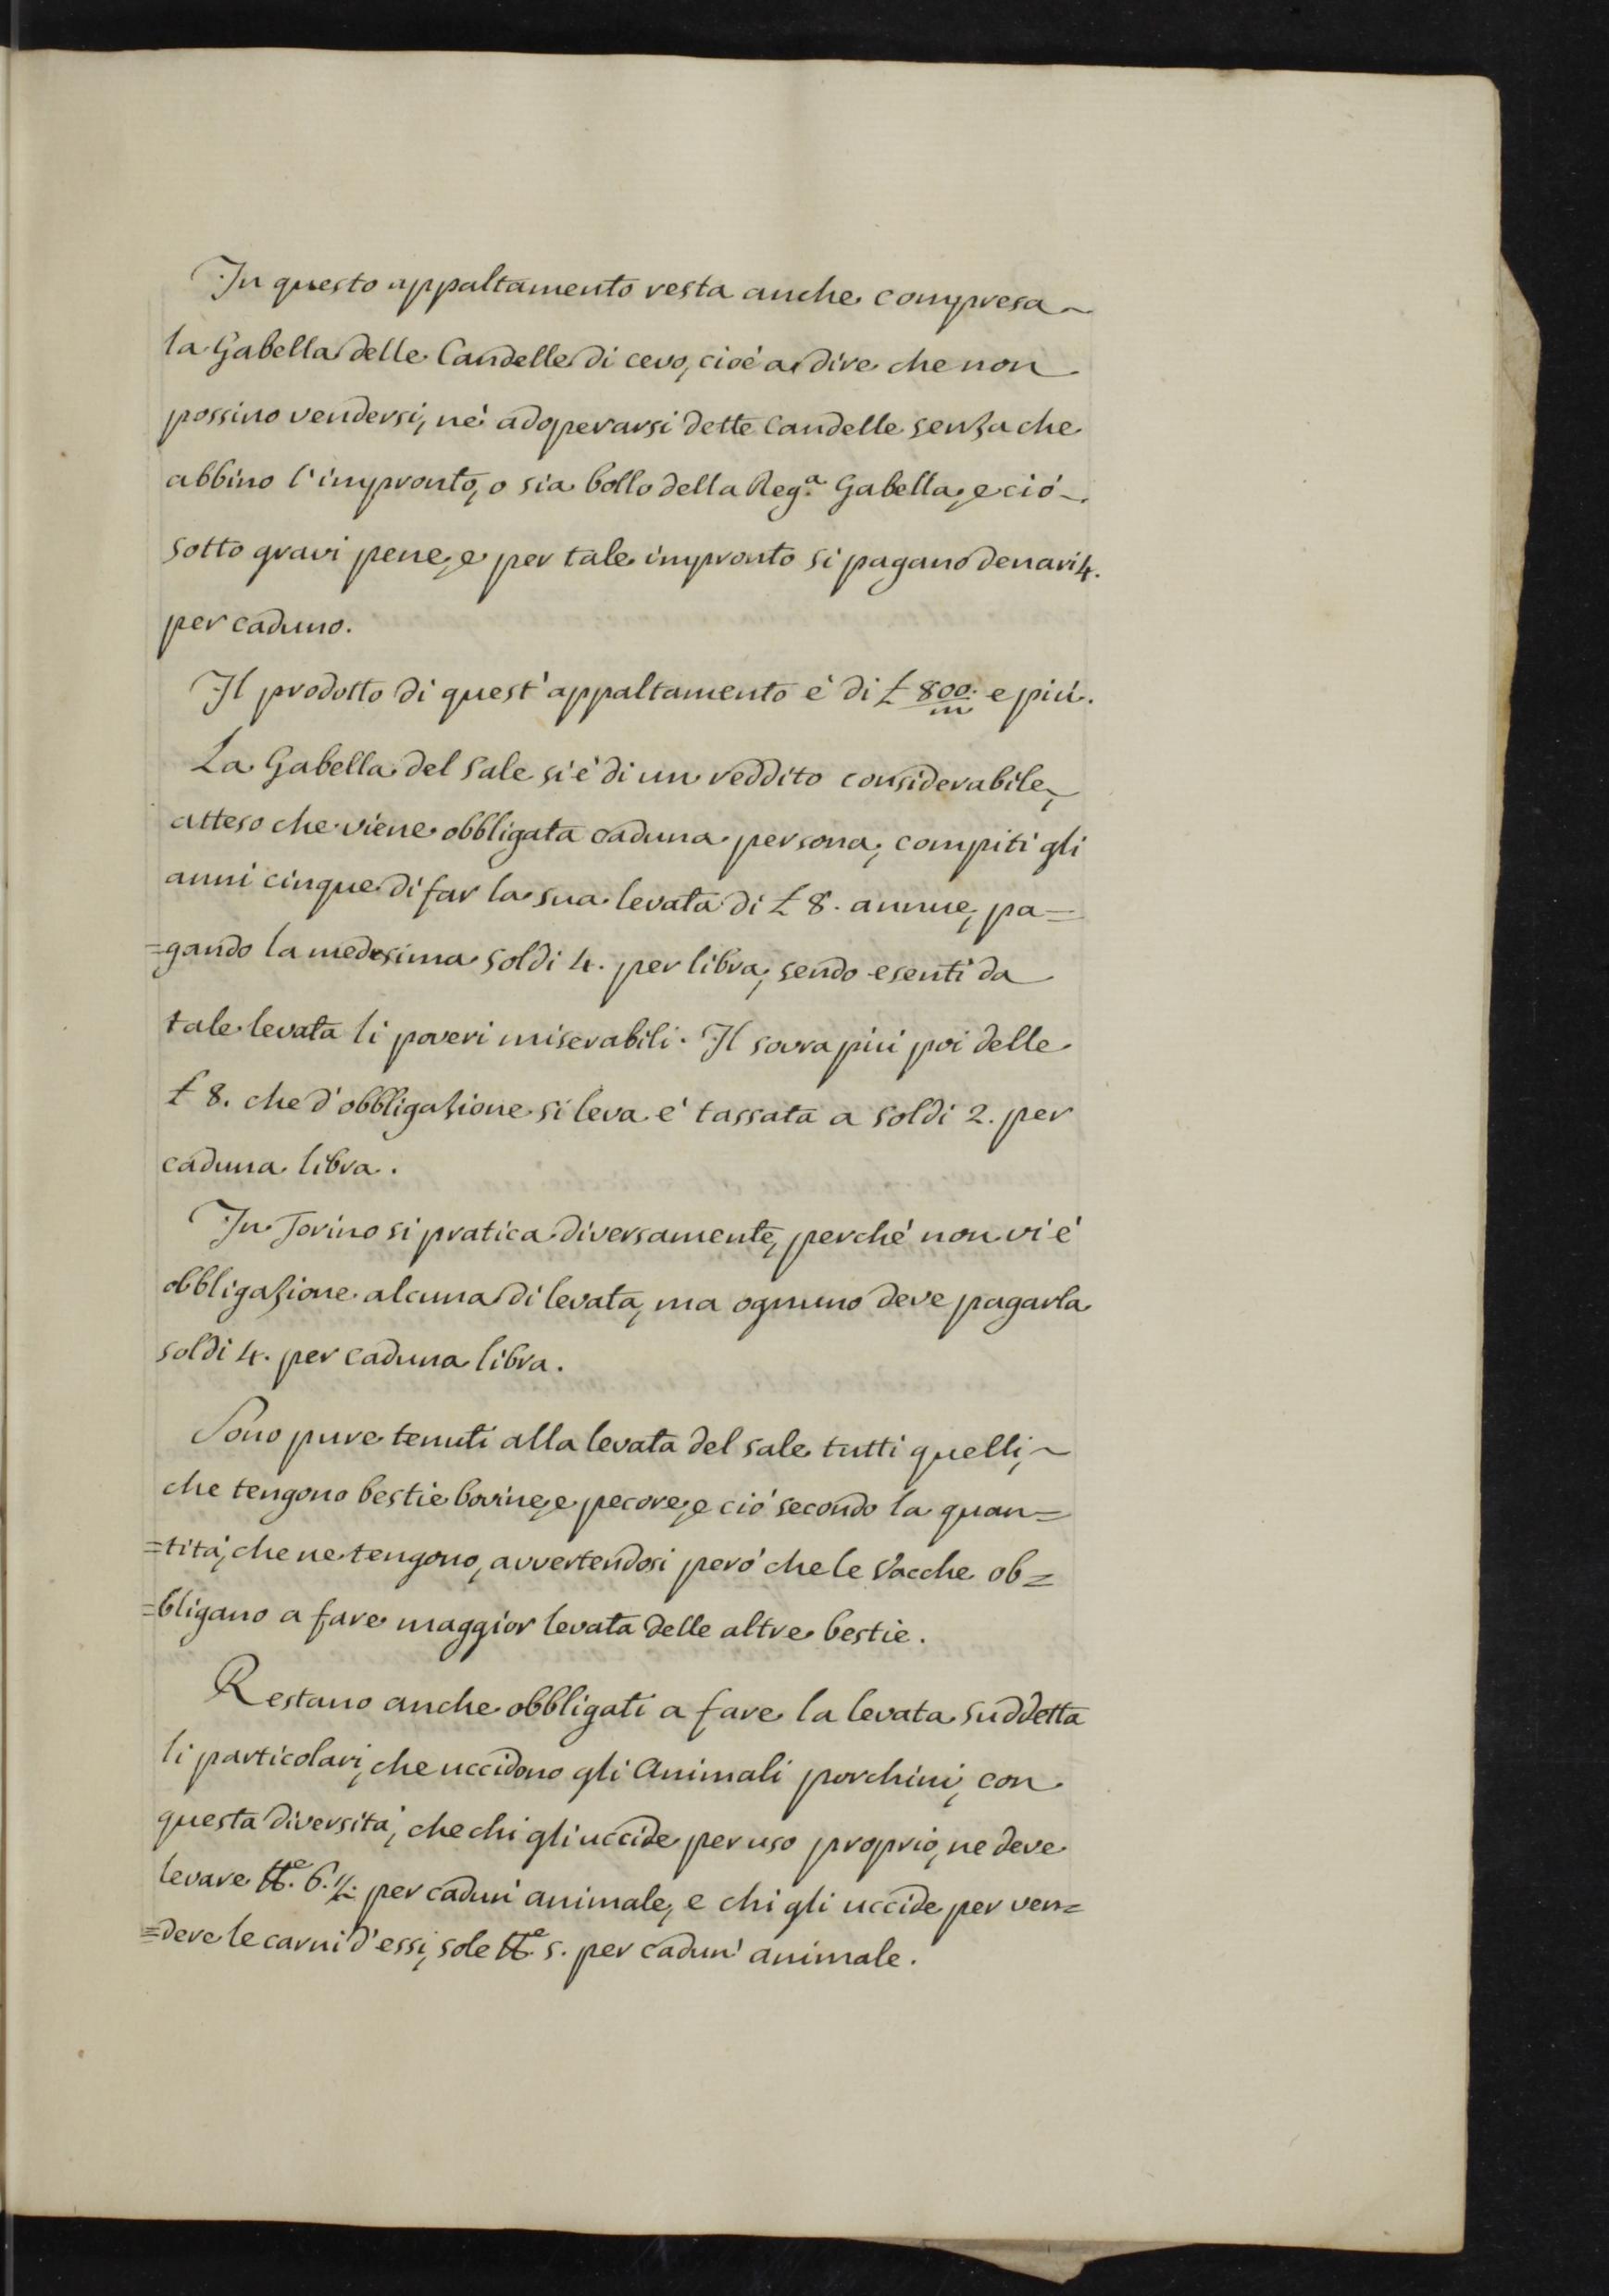 In questo appaltamento resta anche compresa
la Gabella delle Candelle di cevo, cioè a dire che non
possino vendersi, nè adoperarsi dette Candelle senza che
abbino l'impronto, o sia bollo della Reg.ᵃ Gabella, e ciò
sotto gravi pene, e per tale impronto si pagano denari 4.
per caduno.
Il prodotto di quest'appaltamento è di £ 800. m e più.
La Gabella del Sale si è di un reddito considerabile,
atteso che viene obbligata caduna persona, compiti gli
anni cinque di far la sua levata di £ 8. annue, pa=
=gando la medesima soldi 4. per libra, sendo esenti da
tale levata li poveri miserabili. Il sovra più poi delle
£ 8. che d'obbligazione si leva è tassata a soldi 2. per
caduna libra.
In Torino si pratica diversamente, perchè non vi è
obbligazione alcuna di levata, ma ognuno deve pagarla
soldi 4. per caduna libra.
Sono pure tenuti alla levata del sale tutti quelli,
che tengono bestie bovine, e pecore, e ciò secondo la quan=
=tità, che ne tengono, avvertendosi però che le Vacche ob=
=bligano a fare maggior levata delle altre bestie.
Restano anche obbligati a fare la levata suddetta
li particolari, che uccidono gli Animali porchini, con
questa diversità, che chi gli uccide per uso proprio, ne deve
levare ℔.ᵉ 6.½ per cadun' animale, e chi gli uccide per ven=
=dere le carni d'essi, sole ℔.ᵉ 5. per cadun' animale.